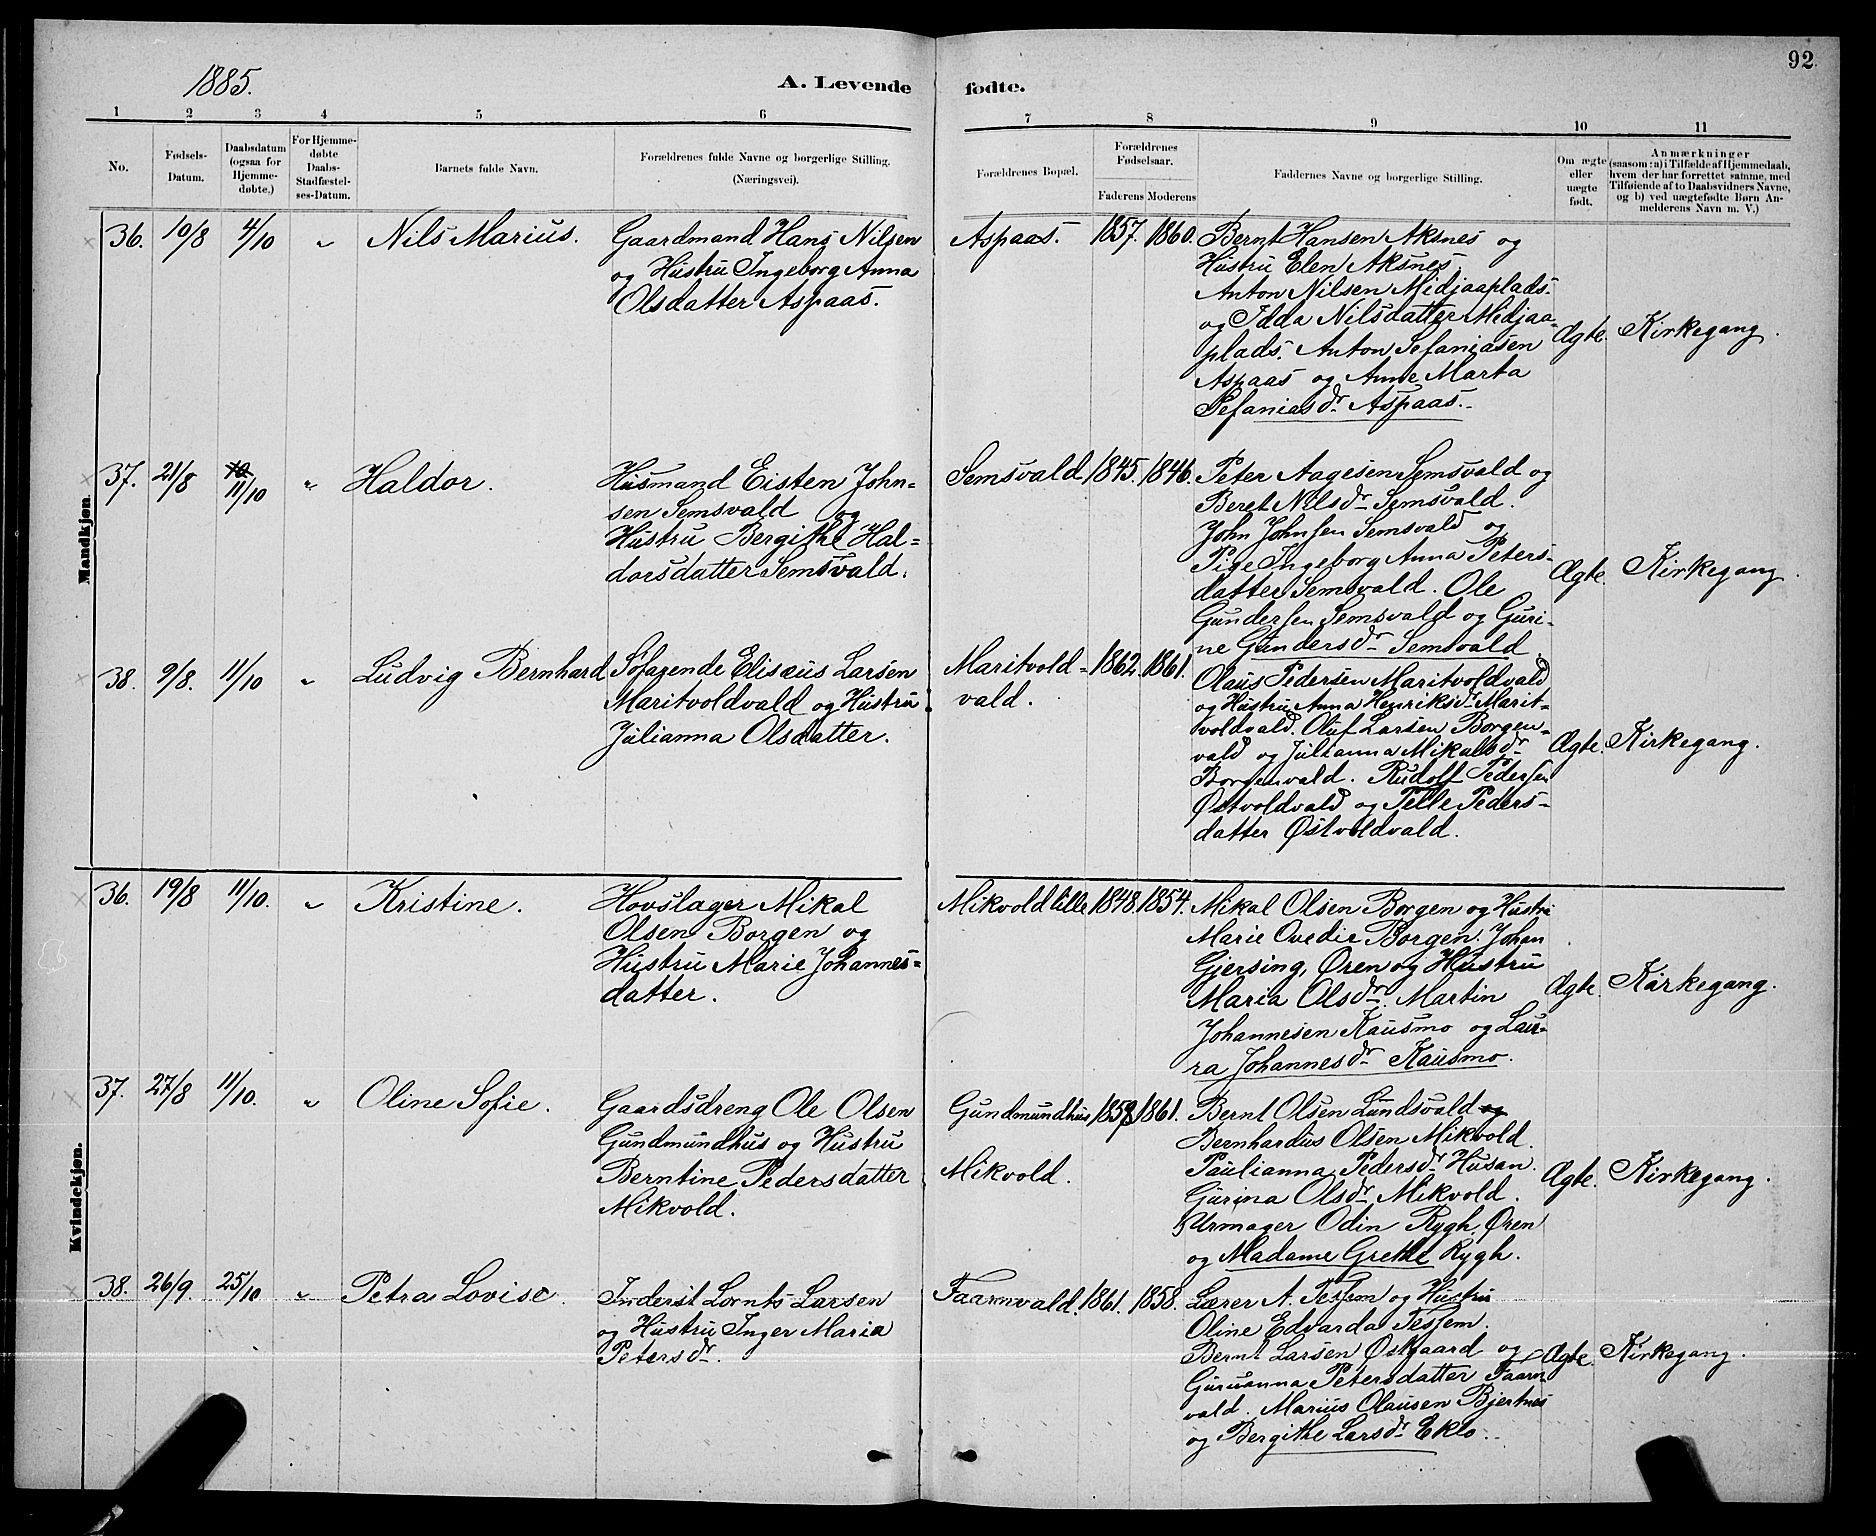 92
1885.
A. Levende fødte.
1 2 3 4 5 6 7 8 9 10 11
No.
Fødsels-
Datum.
Daabsdatum
(ogsaa for
Hjemme-
døbte.)
For Hjemme-
døbte
Daabs-
Stadfæstel-
ses-Datum.
Barnets fulde Navn.
Forældrenes fulde Navne og borgerlige Stilling.
(Næringsvei).
Forældrenes Bopæl.
Forældrenes
Fødselsaar.
Faderens Moderens
Faddernes Navne og borgerlige Stilling.
Om ægte
eller
uægte
født.
Anmærkninger
(saasom: a) i Tilfælde af Hjemmedaab,
hvem der har forrettet samme, med
Tilføiende af to Daabsvidners Navne,
og b) ved uægtefødte Børn An-
melderens Navn m. V.)
Mandkjøn.
36. 19/8 4/10 " Nils Marius.
Gaardmand Hans Nilsen
og Hustru Ingeborg Anna
Olsdatter Aspaas.
Aspaas. 1857. 1860.
Bernt Hansen Aksnes og
Hustru Elen Aksnes
Anton Nilsen Midjaaplads.
og Idda Nilsdatter Midjaa-
plads. Anton Sefaniasen
Aspaas og Anne Marta
Sefaniasdr Aspaas.
Ægte. Kirkegang.
37. 21/8 11/10 " Haldor.
Husmand Eisten John-
sen Semsvald og
Hustru Bergithe Hal-
dorsdatter Semsvald.
Semsvald 1845. 1846.
Peter Aagesen Semsvald og
Beret Nilsdr Semsvald.
John Johnsen Semsvald og
Pige Ingeborg Anna Peters-
datter Semsvald. Ole
Gundersen Semsvald og Guri-
ne Gundersdr Semsvald
Ægte. Kirkegang.
38. 9/8. 11/10 " Ludvig Bernhard
Søfarende Elisæus Larsen
Maritvoldvald og Hustru
Julianna Olsdatter.
Maritvold-
vald.
1862. 1861.
Olaus Pedersen Maritvoldvald
og Hustru Anna Henriksdr Marit-
voldvald. Oluf Larsen Borgen-
vald og Julianna Mikalsdr
Borgenvald. Rudolf Pedersen
Østvoldvald og Pelle Peders-
datter Østvoldvald.
Ægte. Kirkegang.
Kvindekjøn.
36. 19/8 11/10. " Kristine.
Hovslager Mikal
Olsen Borgen og
Hustru Marie Johannes-
datter.
Mikvold lille 1848. 1854.
Mikal Olsen Borgen og Hustru
Marie Ovedie Borgen. Johan
Gjersing, Øren og Hustru
Maria Olsdr. Martin
Johannesen Kausmo og Lau-
ra Johannesdr Kausmo.
Ægte. Kirkegang.
37. 27/8 11/10. " Oline Sofie.
Gaardsdreng Ole Olsen
Gundmundhus og Hustru
Berntine Pedersdatter
Mikvold.
Gundmundhus
Mikvold.
1858 1861.
Bernt Olsen Lundsvald og
Bernhardus Olsen Mikvold.
Paulianna Pedersdr Husan.
Gurina Olsdr Mikvold.
Urmager Odin Rygh. Øren
og Madame Grethe Rygh.
Ægte. Kirkegang.
38. 26/9 25/10 " Petra Lovise.
Inderst Lornts Larsen
og Hustru Inger Maria
Petersdr.
Faarnvald. 1861. 1858.
Lærer A. Tessem og Hustru
Oline Edvarda Tessem.
Bernt Larsen Østgaard og
Guruanna Petersdatter Faarn-
vald. Marius Olausen Bjertnes
og Bergithe Larsdr Eklo.
Ægte. Kirkegang.